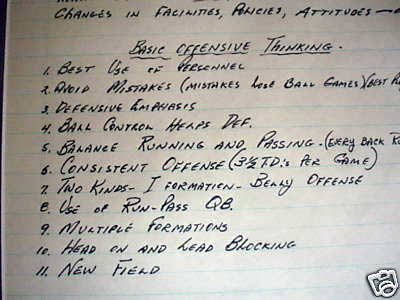 CHANGES IN FACILITIES, POLICIES, ATTITUDES —
BASIC OFFENSIVE THINKING.
1. BEST USE OF PERSONNEL
2. AVOID MISTAKES (MISTAKES LOSE BALL GAMES) (BEST
3. DEFENSIVE EMPHASIS
4. BALL CONTROL HELPS DEF.
5. BALANCE RUNNING AND PASSING. (EVERY BACK
6. CONSISTENT OFFENSE (3½ T.D.'s PER GAME)
7. TWO KINDS - I FORMATION - BELLY OFFENSE
8. USE OF RUN-PASS QB.
9. MULTIPLE FORMATIONS
10. HEAD ON AND LEAD BLOCKING
11. NEW FIELD